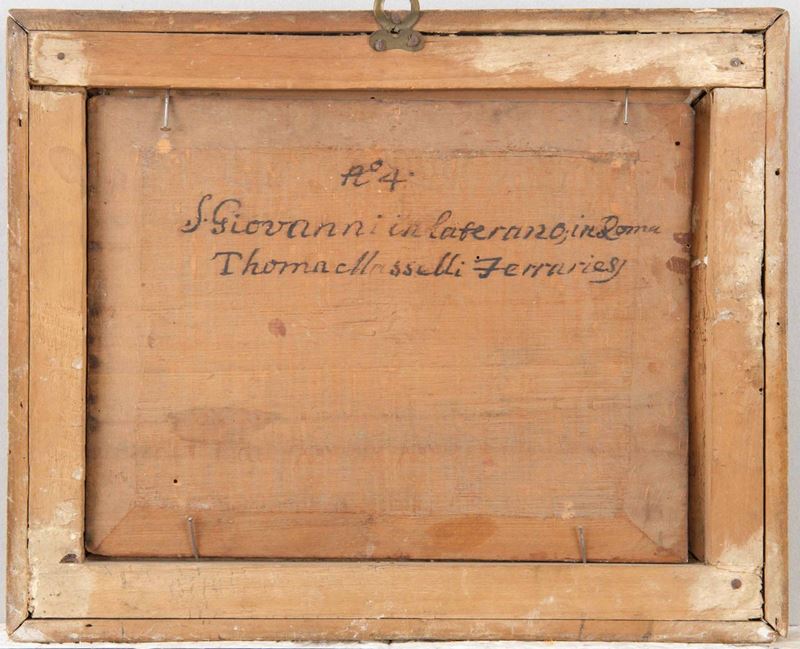 No 4.
S. Giovanni in laterano, in Roma
Thoma Masselli Ferraries